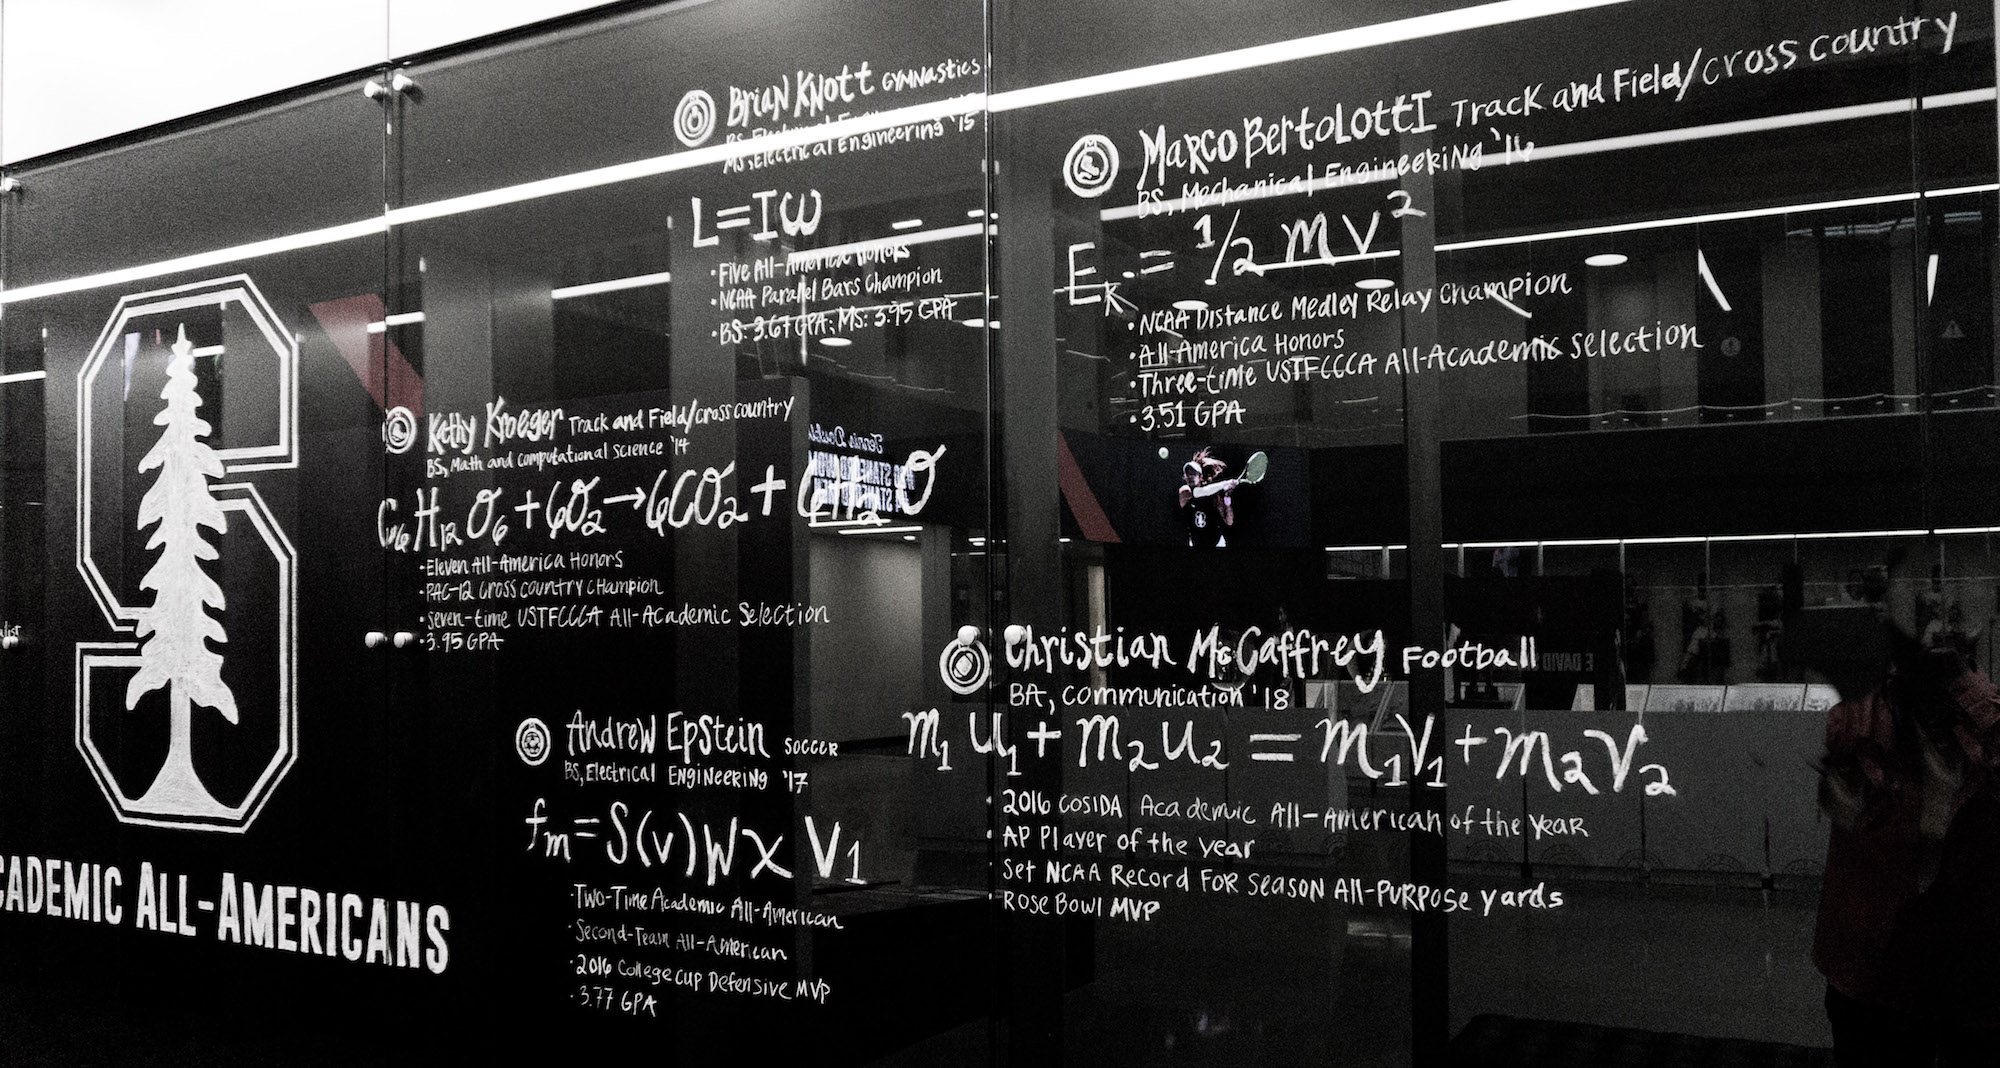 Brian Knott Gymnastics
BS, Electrical Engineering
MS, Electrical Engineering '15
L=Iω
• Five All-America Honors
• NCAA Parallel Bars Champion
• BS: 3.67 GPA; MS: 3.95 GPA
Marco Bertolotti Track and Field/Cross Country
BS, Mechanical Engineering '16
E_K = 1/2 mv²
• NCAA Distance Medley Relay Champion
• All-America Honors
• Three-time USTFCCCA All-Academic Selection
• 3.51 GPA
Kathy Kroeger Track and Field/Cross Country
BS, Math and Computational Science '14
C₆H₁₂O₆ + 6O₂ → 6CO₂ + 6H₂O
• Eleven All-America Honors
• PAC-12 Cross Country Champion
• Seven-time USTFCCCA All-Academic Selection
• 3.95 GPA
Andrew Epstein Soccer
BS, Electrical Engineering '17
fₘ = S(v)W x V₁
• Two-Time Academic All-American
• Second-Team All-American
• 2016 College Cup Defensive MVP
• 3.77 GPA
Christian McCaffrey Football
BA, Communication '18
m₁u₁ + m₂u₂ = m₁v₁ + m₂v₂
• 2016 CoSIDA Academic All-American of the Year
• AP Player of the Year
• Set NCAA Record for Season All-Purpose Yards
• Rose Bowl MVP
CADEMIC ALL-AMERICANS